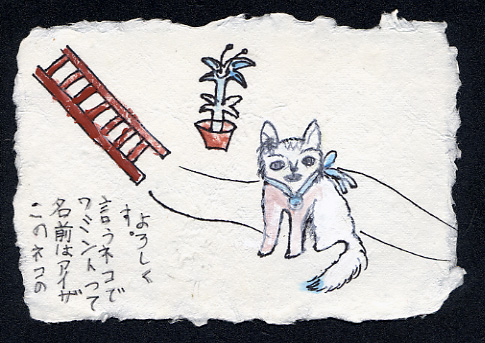 このネコの
名前はアイザ
ワミントって
言うネコで
す。
よろしく